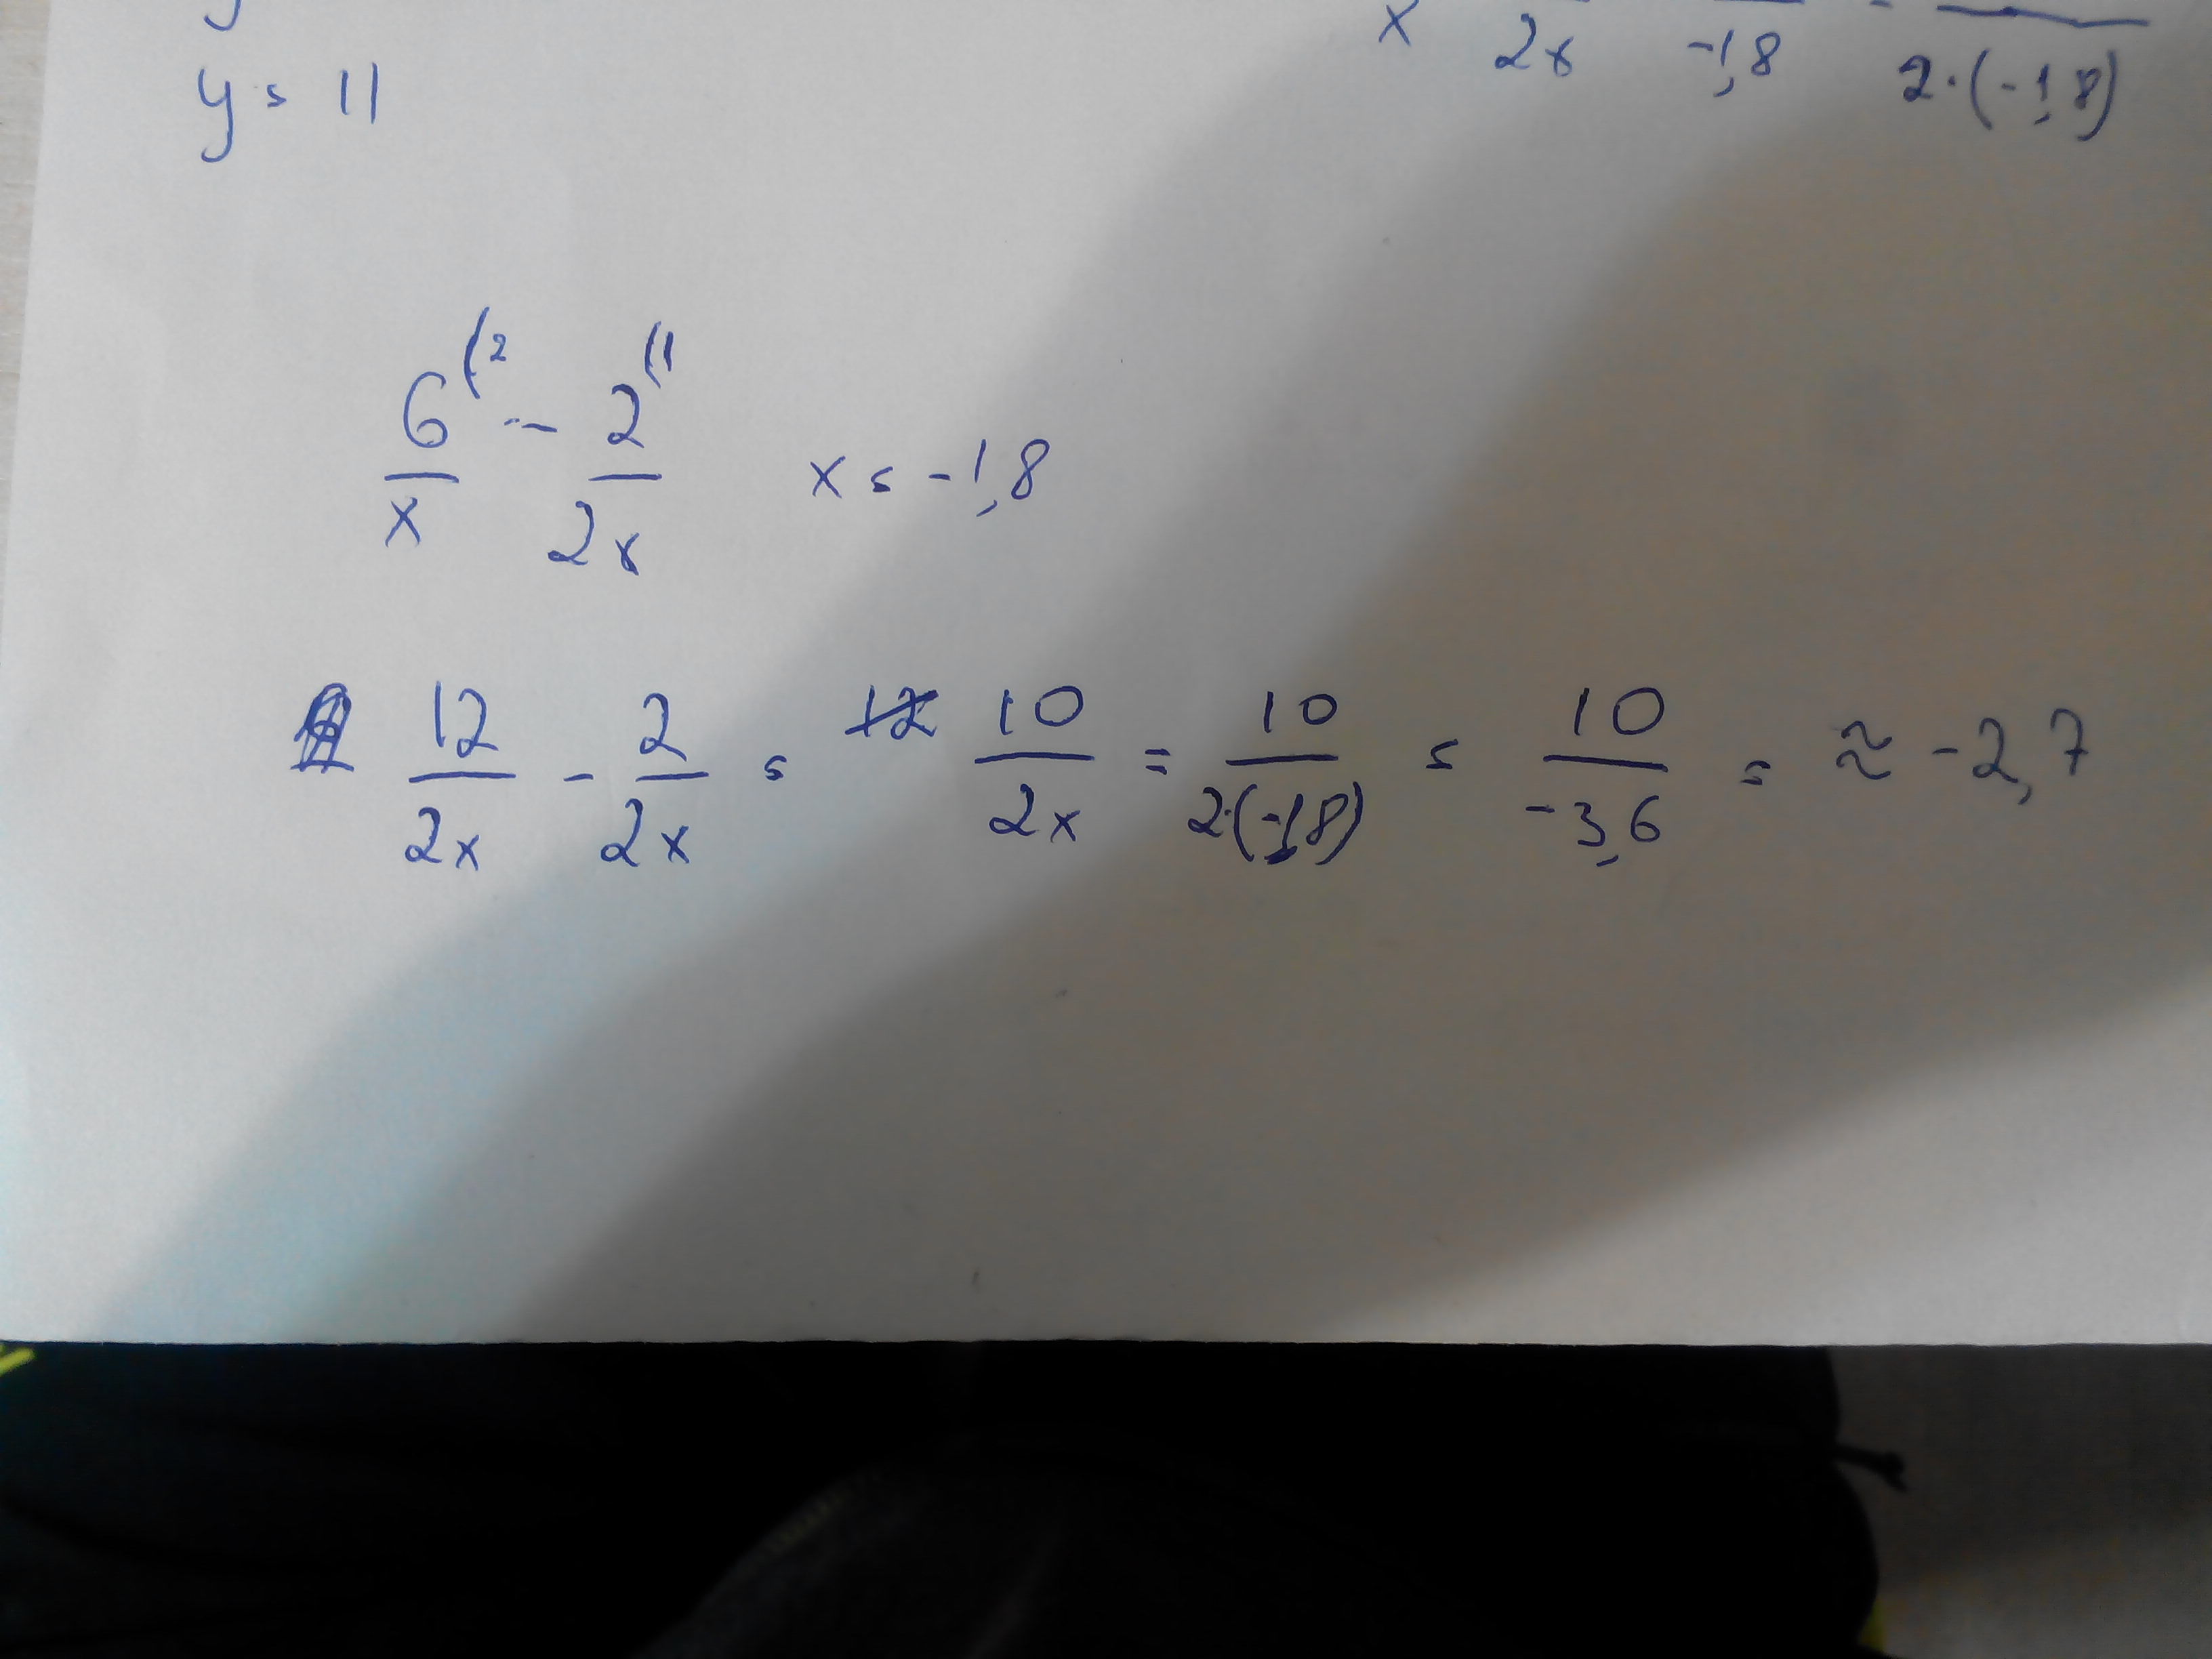 y = 11
x 2x -1,8 2·(-1,8)
6(2 - 2(1
x 2x x = -1,8
12/2x - 2/2x = 12 10/2x = 10/2·(-1,8) = 10/-3,6 = ≈ -2,7